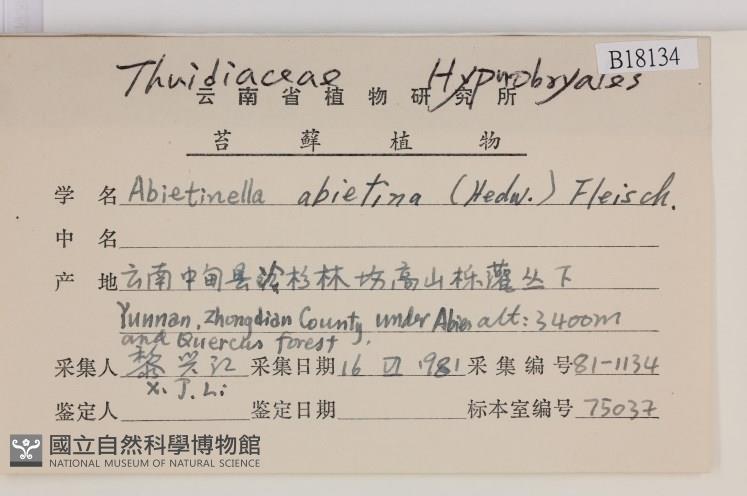 B18134
Thuidiaceae Hypnobryales
云南省植物研究所
苔藓植物
学名 Abietinella abietina (Hedw.) Fleisch.
中名
产地 云南中甸县冷杉林坊高山栎灌丛下
Yunnan, Zhongdian County under Abies alt: 3400m
and Quercus forest,
采集人 黎兴江 采集日期 16 VI 1981 采集编号 81-1134
X. J. Li
鉴定人 鉴定日期 标本室编号 75037
國立自然科學博物館
NATIONAL MUSEUM OF NATURAL SCIENCE